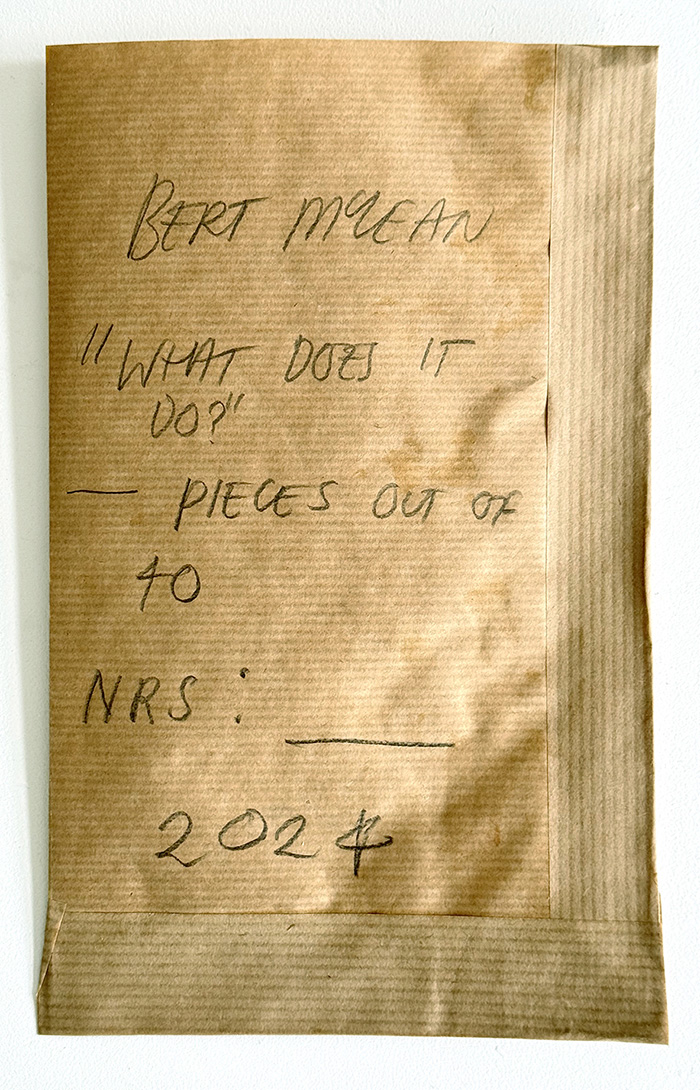 BERT McLEAN
"WHAT DOES IT
DO?"
— PIECES OUT OF
40
NRS : ____
2024